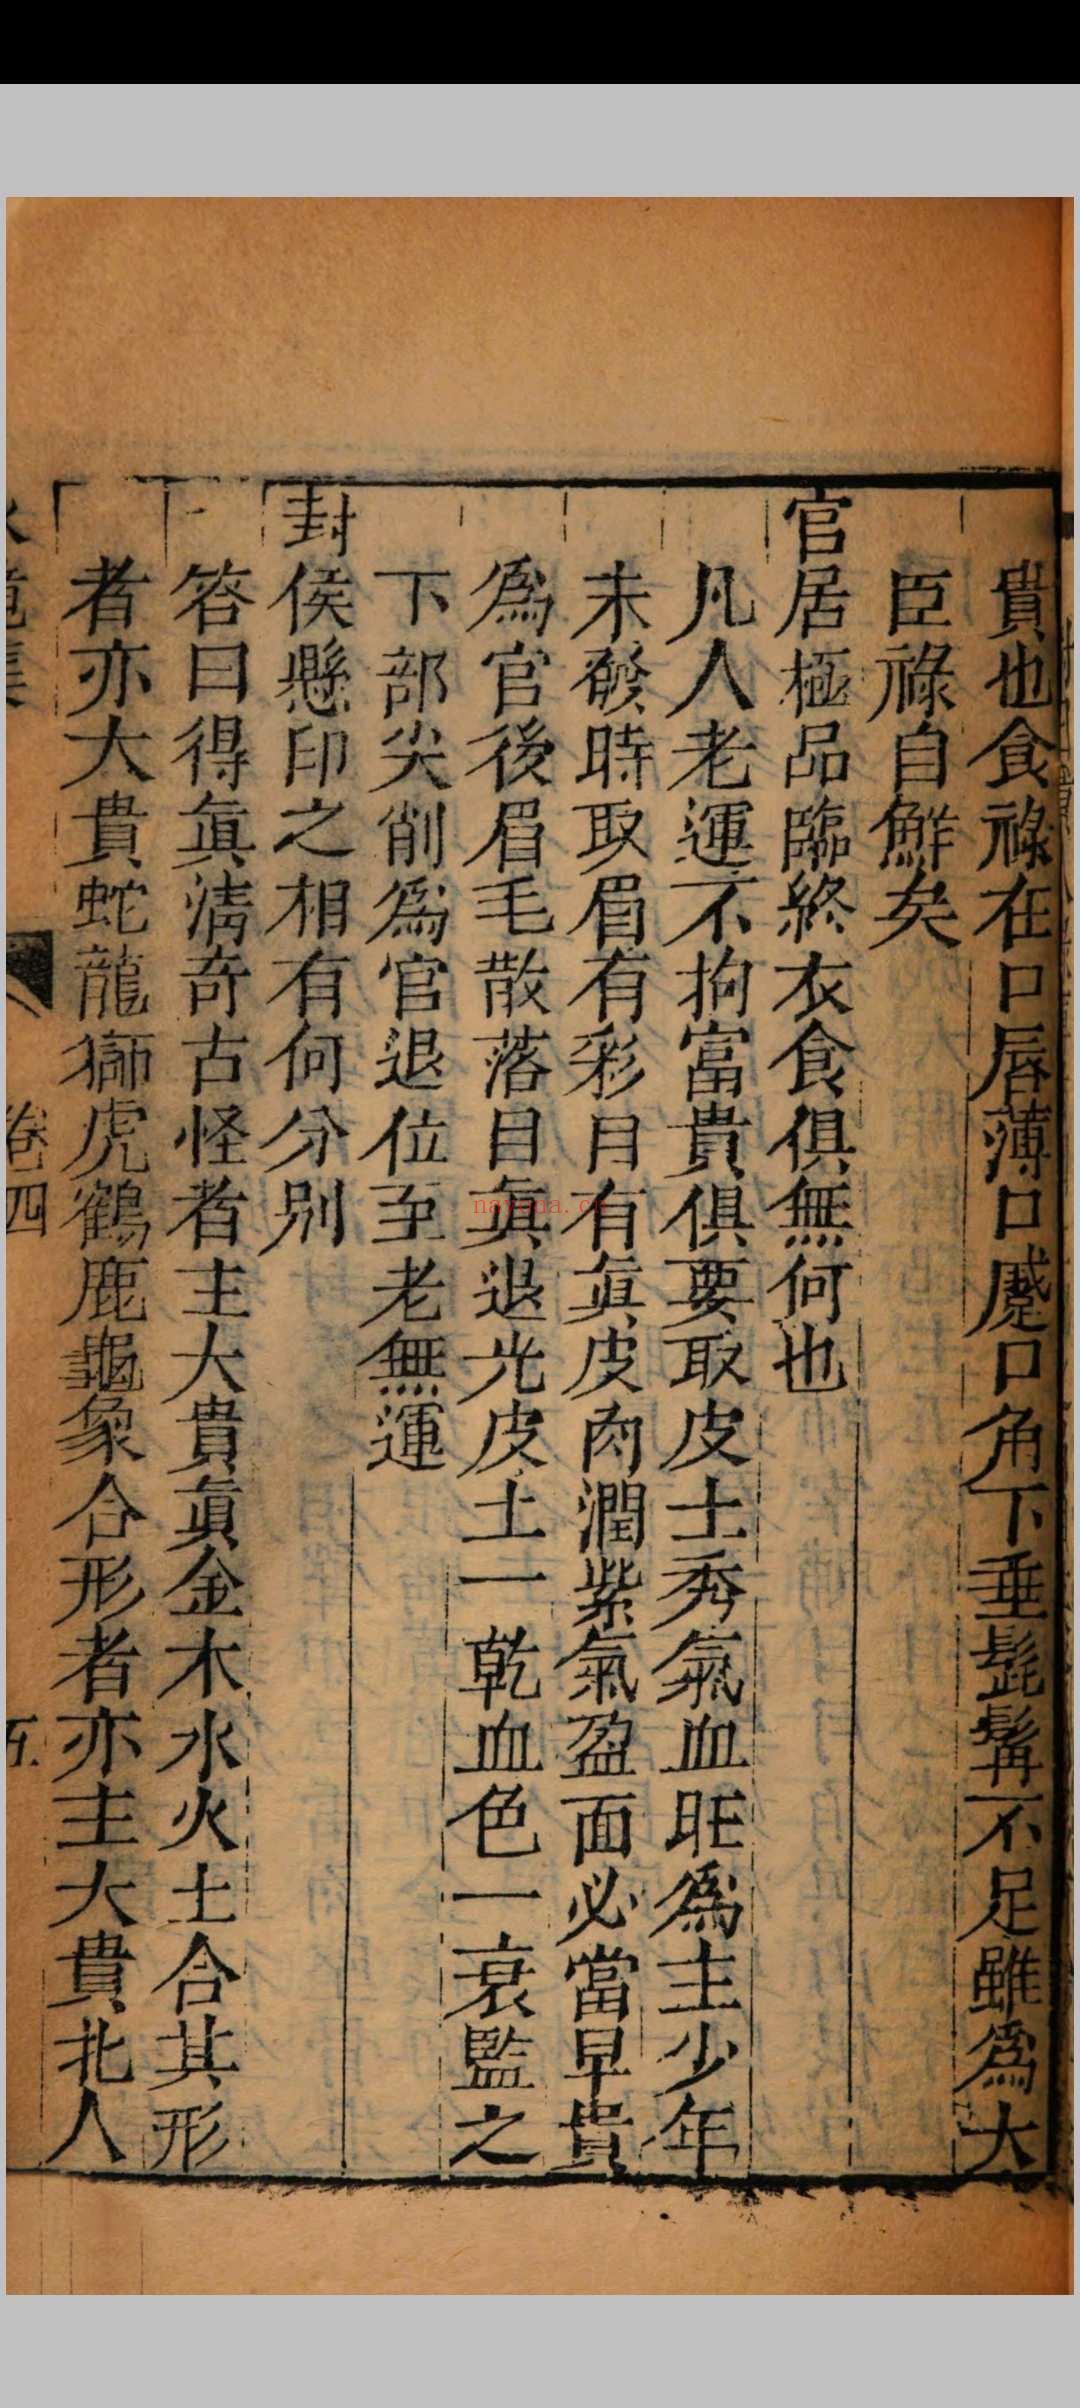 貴也食祿在口唇薄口蹙口角下垂髭髯不足雖爲大
臣祿自鮮矣
官居極品臨終衣食俱無何也
凡人老運不拘富貴俱要取皮土秀氣血旺爲主少年
未發時取眉有彩目有眞皮肉潤紫氣盈面必當早貴
爲官後眉毛散落目眞退光皮土一乾血色一衰監之
下部尖削爲官退位至老無運
封侯懸印之相有何分別
答曰得眞淸奇古怪者主大貴眞金木水火土合其形
者亦大貴蛇龍獅虎鶴鹿龜象合形者亦主大貴北人
卷四
五
nayoda.cn